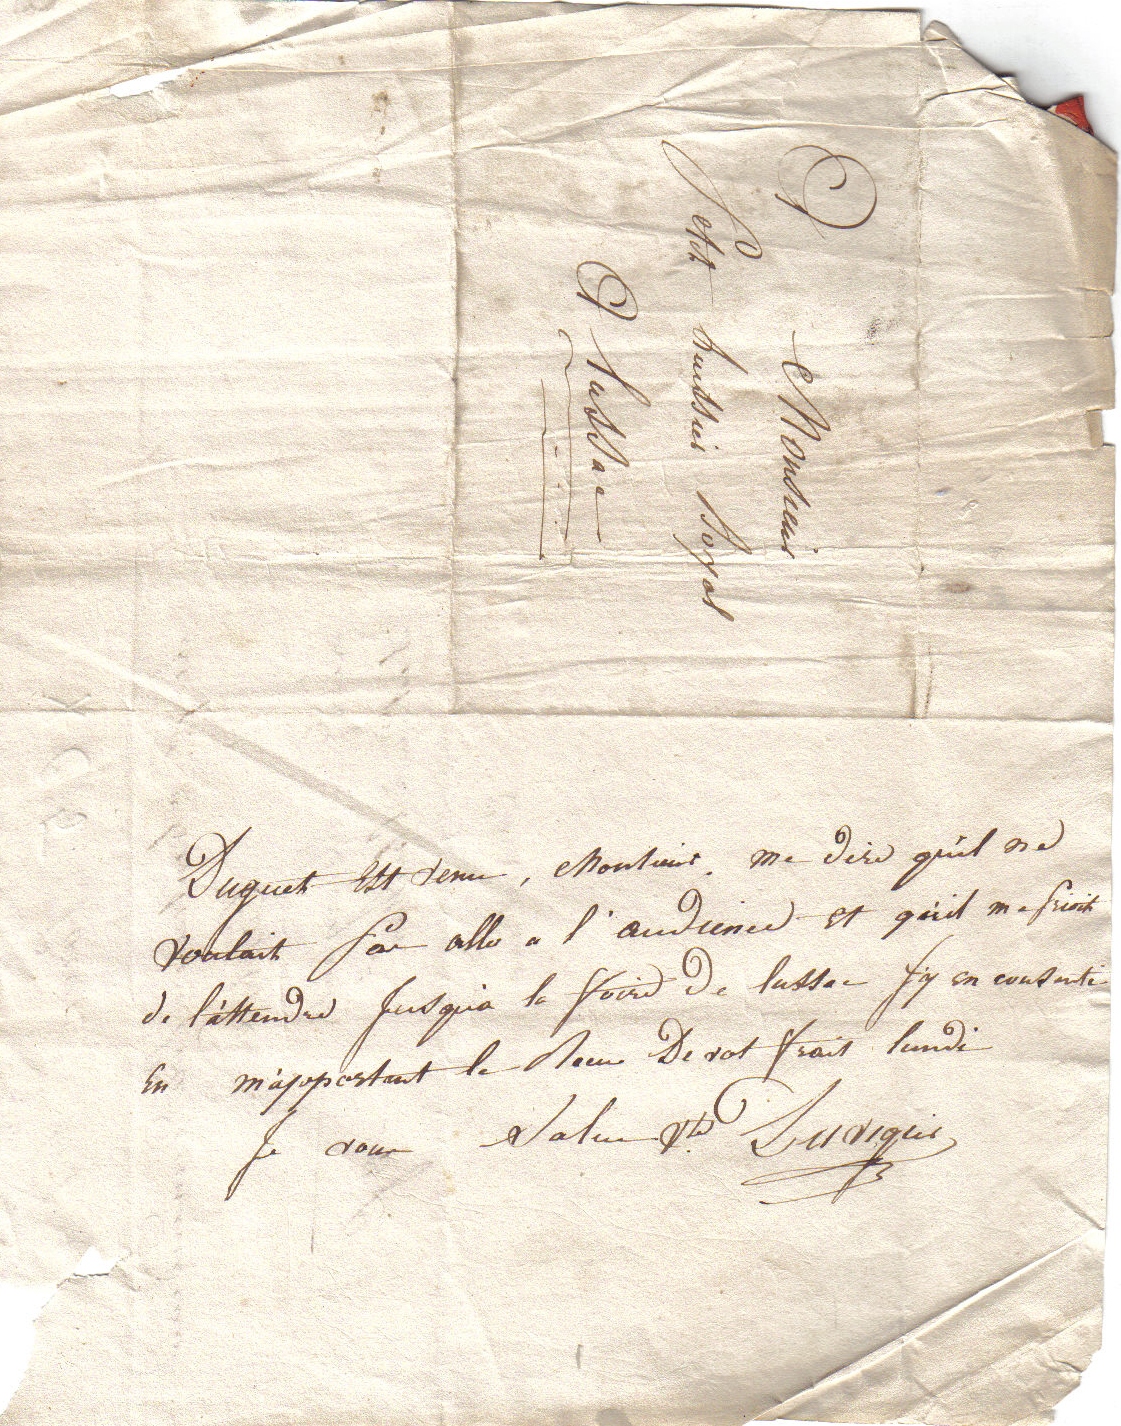 A
Monsieur
Petit huissier Royal
A Lussac
Duquet Est venu, Monsieur, me dire qu'il ne
voulait pas alle a l'audience et qu'il me priait
de l'attendre jusqu'a la foire de lussac j'y en consenti
En m'apportant le Recu De vot frait lundi
Je vous salue